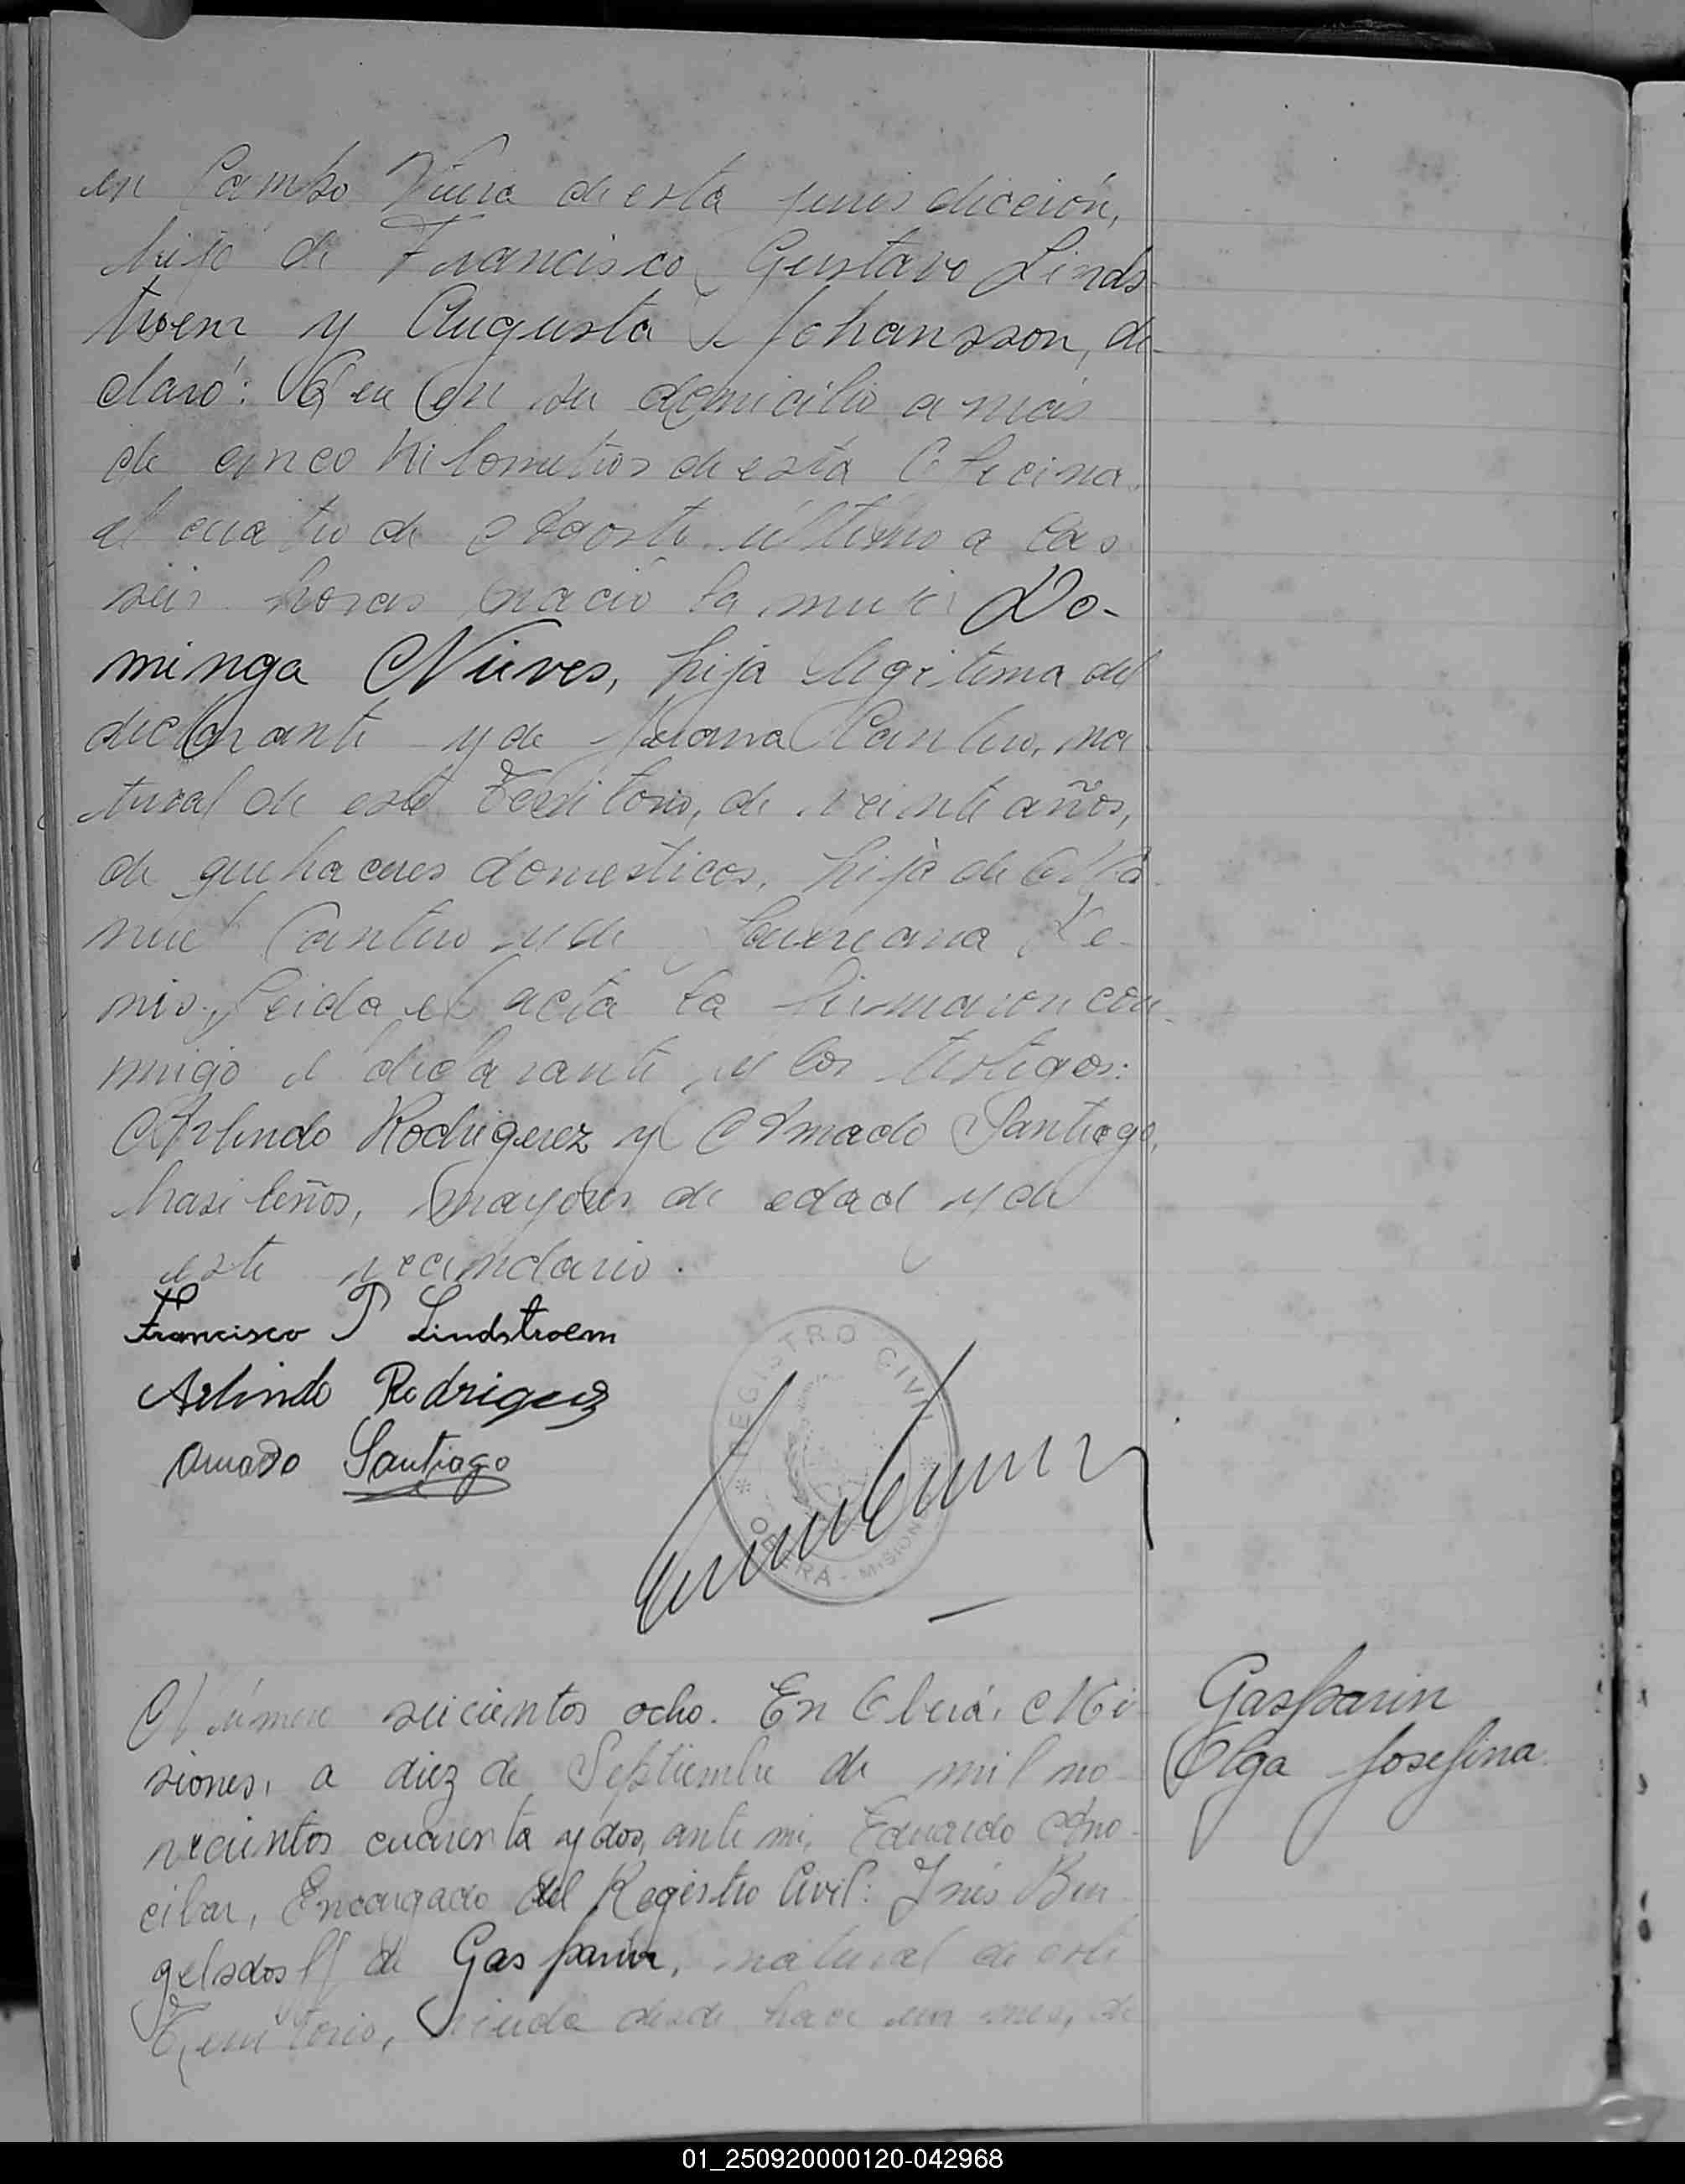 en Campo Viera de esta jurisdicción,
hijo de Francisco Gustavo Linds-
troem y Augusta Johansson, de-
claró: Que en su domicilio a más
de cinco kilometros de esta Oficina
el cuatro de Agosto último a las
seis horas nació la mujer Do-
minga Nieves, hija legitima del
declarante y de Juana Cantero, na-
tural de este Territorio, de veinte años,
de quehaceres domesticos, hija de Ma-
nuel Cantero y de Laureana Le-
mis. Leida el acta la firmaron con-
migo el declarante y los testigos:
Arlindo Rodriguez y Amado Santiago,
brasileños, mayores de edad y de
este vecindario.
Francisco P Lindstroem
Arlindo Rodriguez
Amado Santiago
REGISTRO CIVIL
OBERA - MISIONES
Número seicientos ocho. En Oberá, Mi-
siones, a diez de Septiembre de mil no-
vecientos cuarenta y dos, ante mi, Eduardo Ano-
cibar, Encargado del Registro Civil: Inés
de Gasparin, natural de este
Territorio, viuda desde hace un mes, de
Gasparin
Olga Josefina
01_250920000120-042968